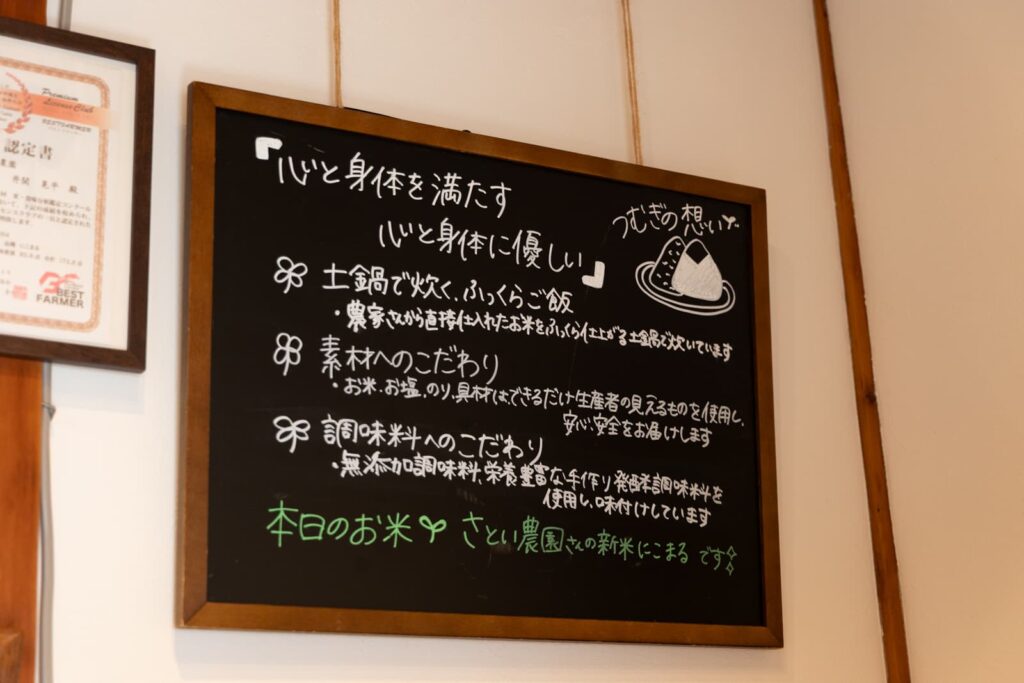 Premium
License Club
BESTFARMER
認定書
BEST
FARMER
『心と身体を満たす
心と身体に優しい』
つむぎの想い
土鍋で炊く、ふっくらご飯
・農家さんから直接仕入れたお米をふっくら仕上がる土鍋で炊いています
素材へのこだわり
・お米、お塩、のり、具材は、できるだけ生産者の見えるものを使用し、
安心、安全をお届けします
調味料へのこだわり
・無添加調味料、栄養豊富な手作り発酵調味料を
使用し、味付けしています
本日のお米 さとい農園さんの新米にこまる です